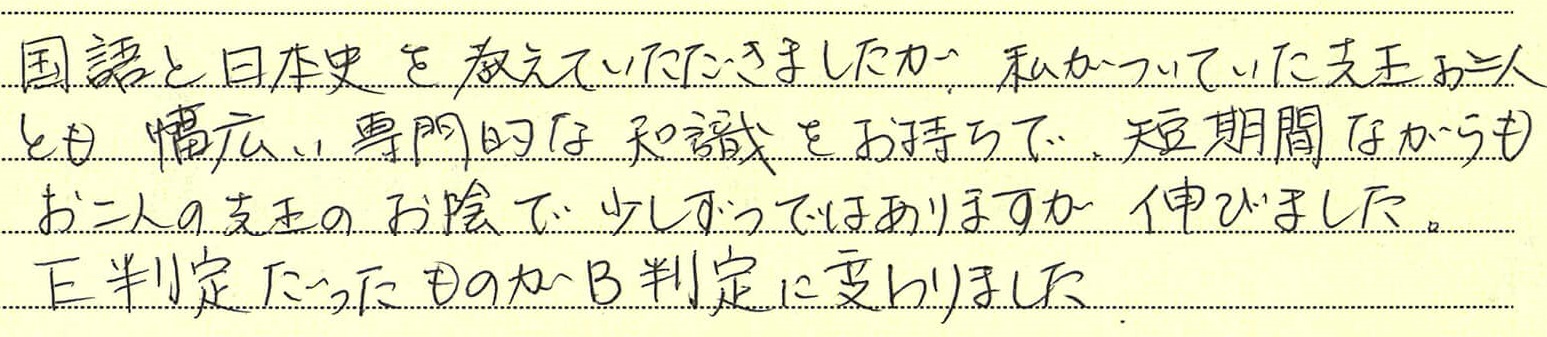 国語と日本史を教えていただきましたが、私がついていた先生お二人
とも 幅広い専門的な知識をお持ちで、短期間ながらも
お二人の先生のお陰で少しずつではありますが 伸びました。
E判定だったものがB判定に変わりました